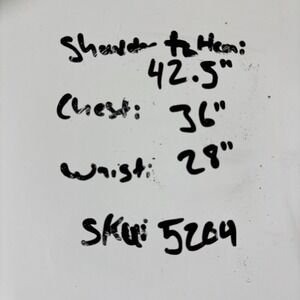 Shoulder to Hem:
42.5"
Chest: 36"
Waist: 28"
SKU: 5204